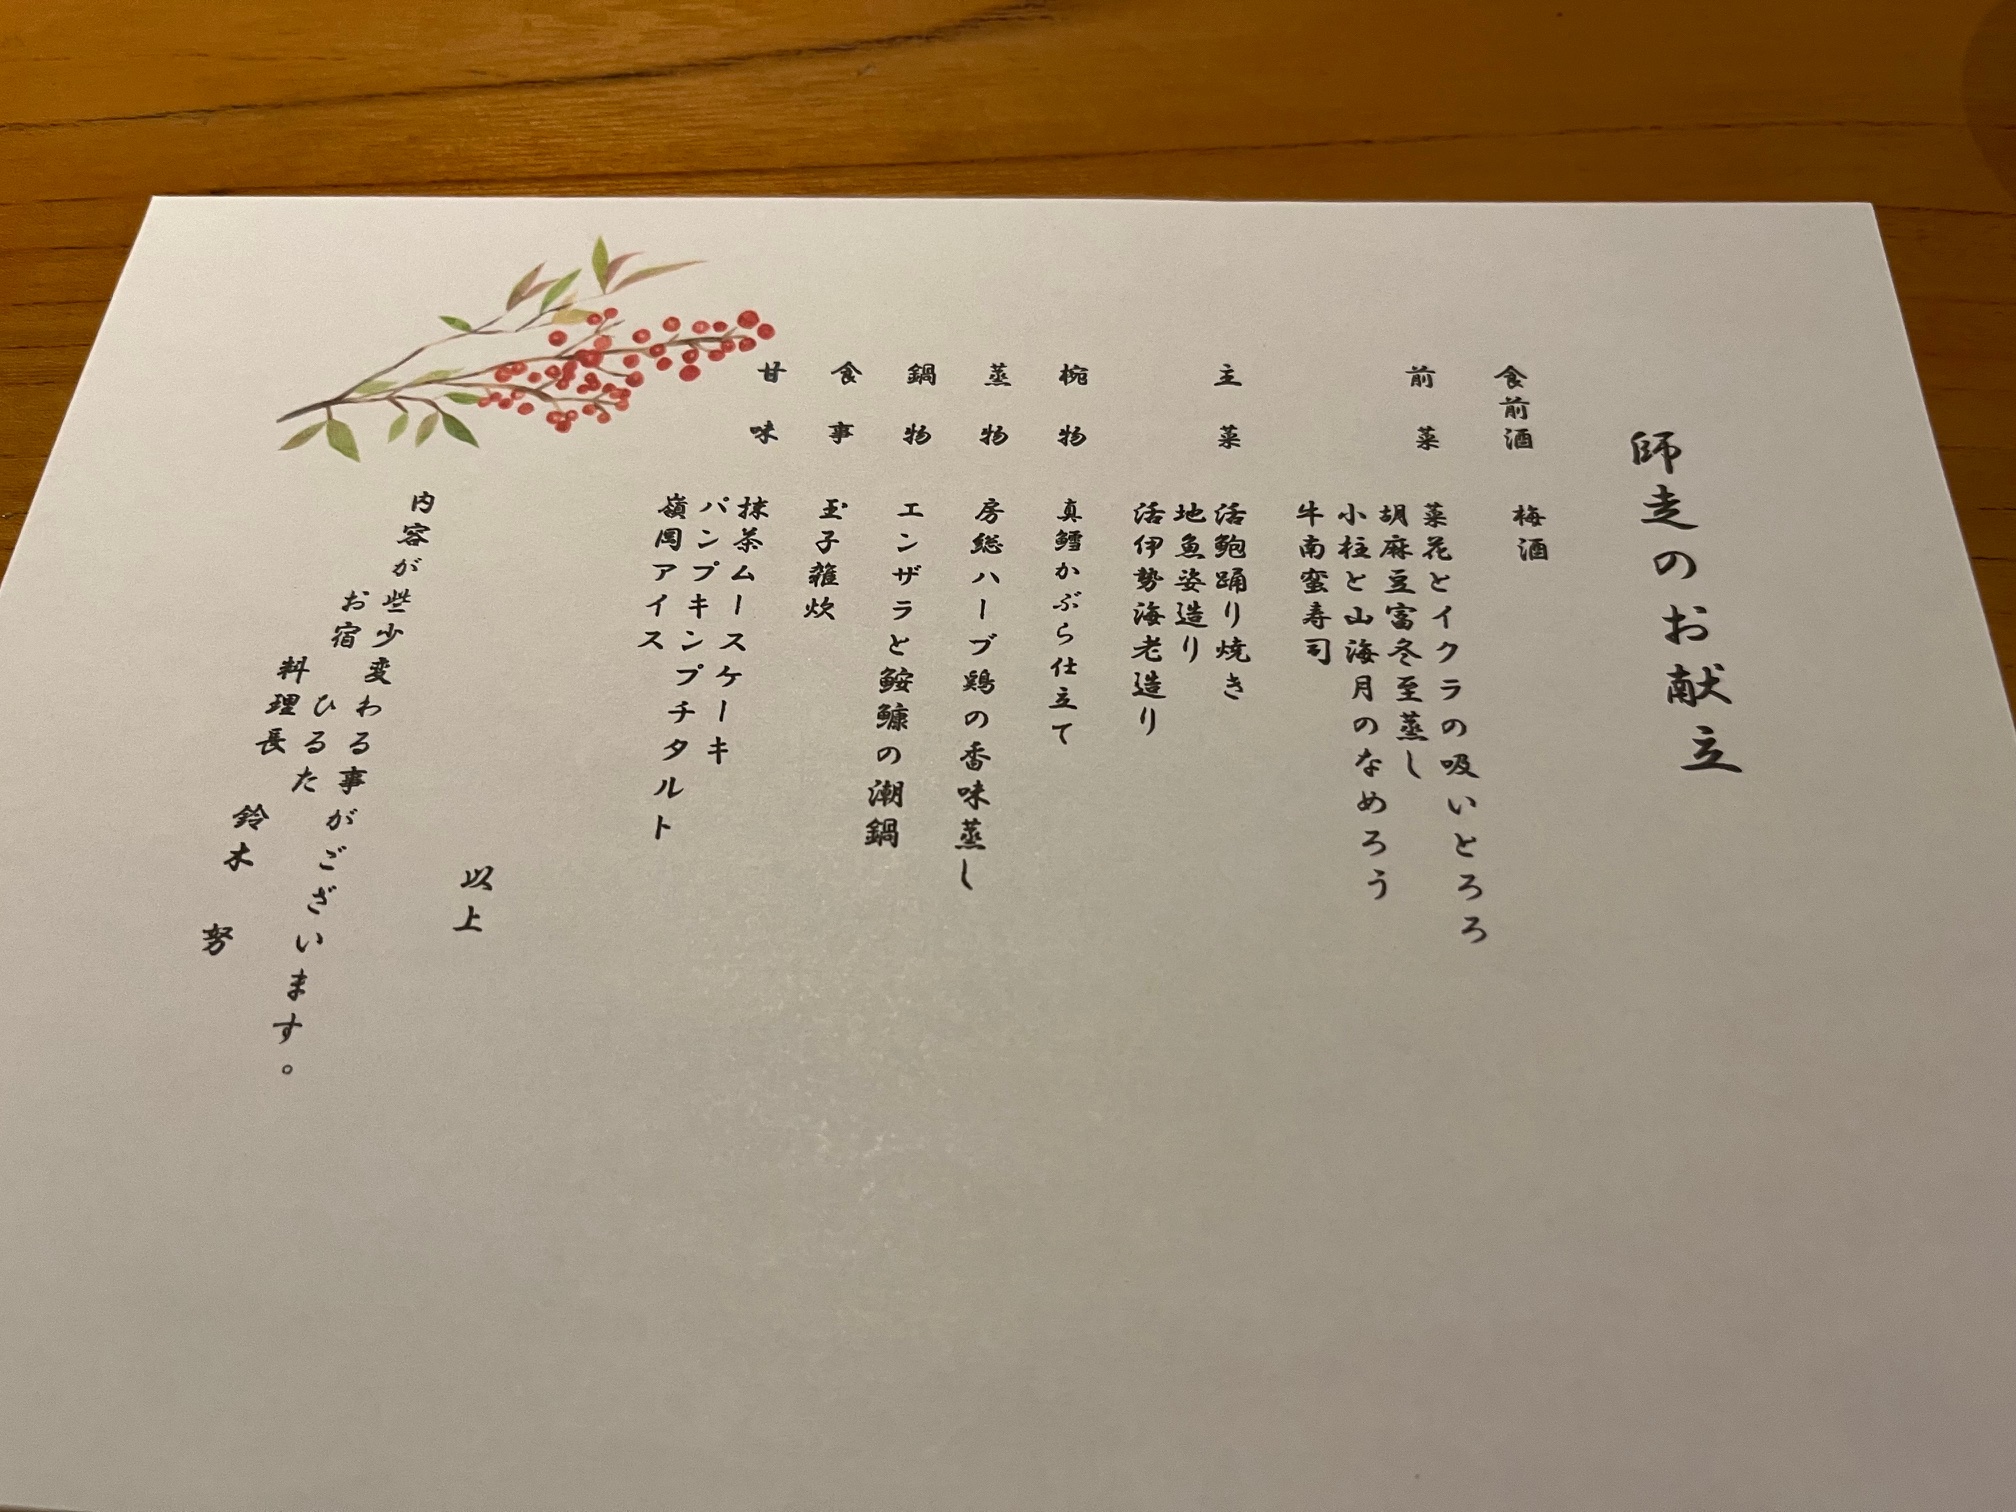 師走のお献立
食前酒 梅酒
前菜 菜花とイクラの吸いとろろ
胡麻豆富冬至蒸し
小柱と山海月のなめろう
牛南蛮寿司
主菜 活鮑踊り焼き
地魚姿造り
活伊勢海老造り
椀物 真鱈かぶら仕立て
蒸物 房総ハーブ鶏の香味蒸し
鍋物 エンザラと鮟鱇の潮鍋
食事 玉子雑炊
甘味 抹茶ムースケーキ
パンプキンプチタルト
嶺岡アイス
以上
内容が些少変わる事がございます。
お宿 ひるた
料理長 鈴木 努